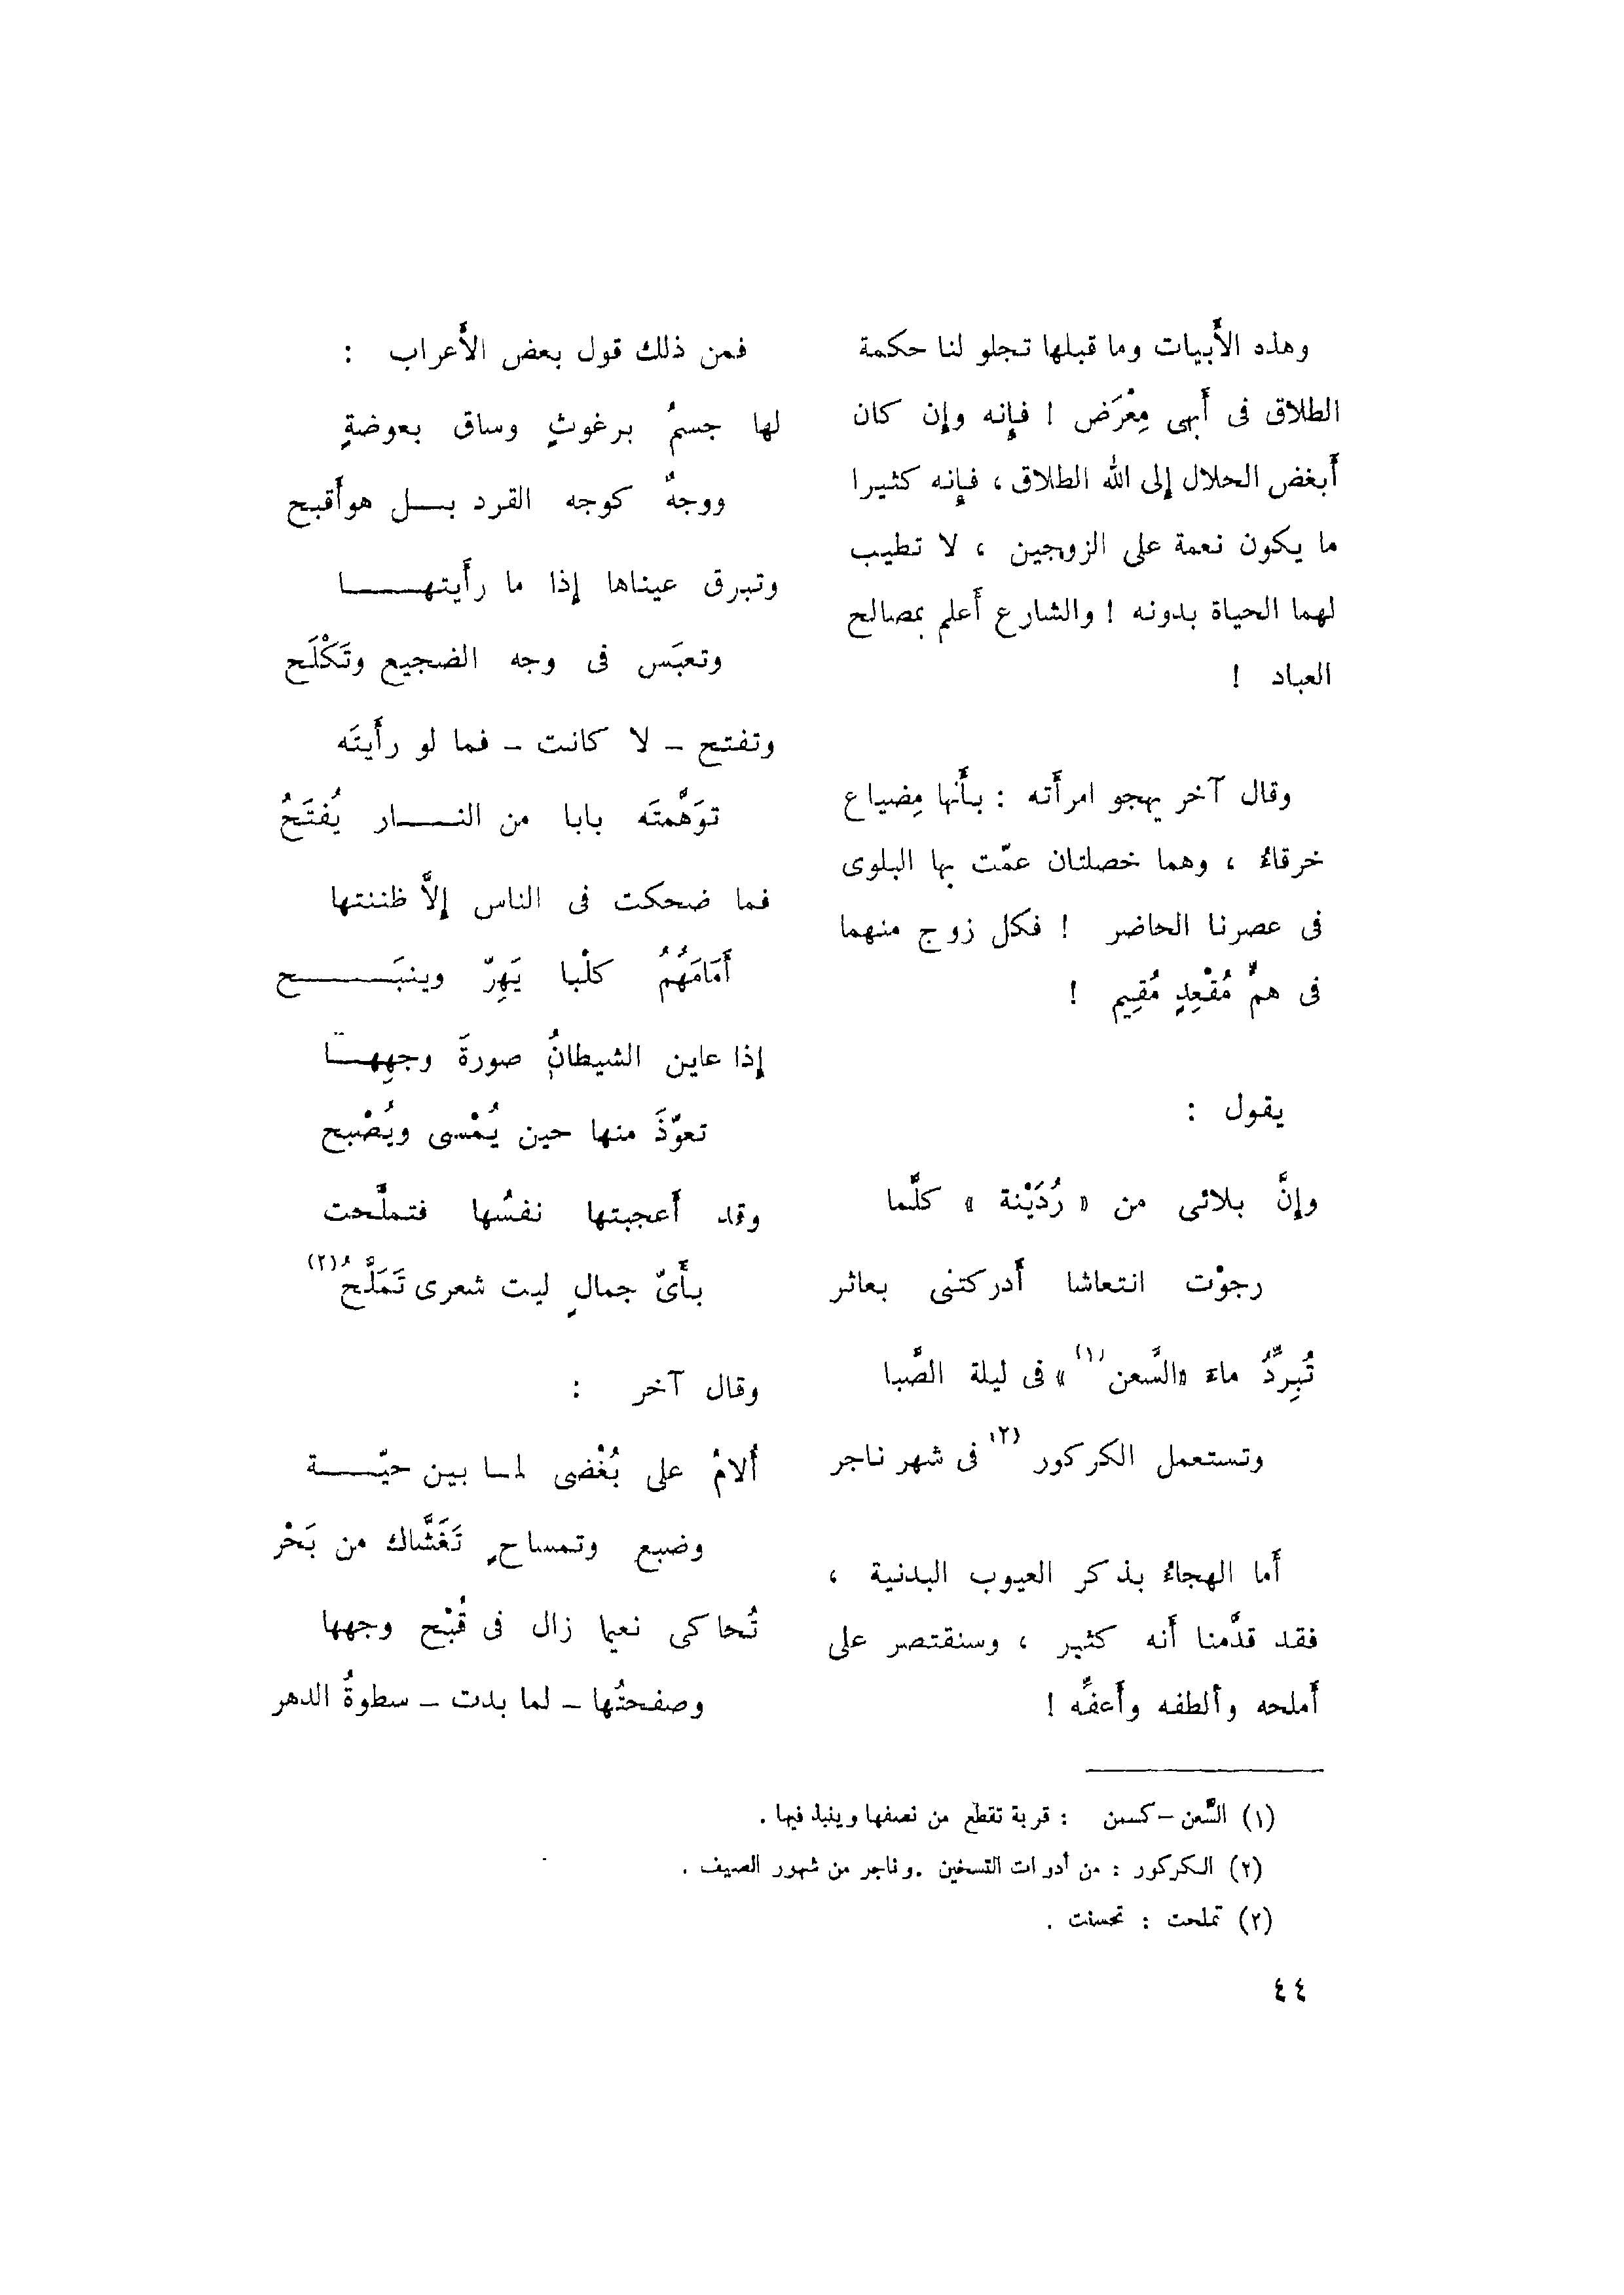 وهذه الأَبيات وما قبلها تجلو لنا حكمة
الطلاق فى أَبهى مِعْرَض ! فإِنه وإِن كان
أَبغض الحلال إِلى الله الطلاق ، فإِنه كثيرا
ما يكون نعمة على الزوجين ، لا تطيب
لهما الحياة بدونه ! والشارع أَعلم بمصالح
العباد !
وقال آخر يهجو امرأَته : بأَنها مِضياع
خرقاءُ ، وهما خصلتان عمّت بها البلوى
فى عصرنا الحاضر ! فكل زوج منهما
فى همٍّ مُقْعِدٍ مُقِيم !
يقول :
وإِنَّ بلائى من « رُدَيْنة » كلَّما
رجوْت انتعاشا أَدركتنى بعاثر
تُبرِّدُ ماءَ «السَّعن (١)» فى ليلة الصَّبا
وتستعمل الكركور (٢) فى شهر ناجر
أَما الهجاءُ بذكر العيوب البدنية ،
فقد قدَّمنا أَنه كثير ، وسنقتصر على
أَملحه وألطفه وأَعفِّه !
فمن ذلك قول بعض الأَعراب :
لها جسمُ برغوثٍ وساق بعوضةٍ
ووجهٌ كوجه القرد بـــل هو أَقبح
وتبرق عيناها إِذا ما رأَيتهـــــا
وتعبَس فى وجه الضجيع وتَكْلَح
وتفتح - لا كانت - فما لو رأَيتَه
توَهَّمتَه بابا من النـــار يُفتَحُ
فما ضحكت فى الناس إِلاَّ ظننتها
أَمَامَهُمُ كلْبا يَهِرّ وينبَـــــــح
إِذا عاين الشيطانُ صورةَ وجهِهـــا
تعوّذَ منها حين يُمْسى ويُصْبح
وقد أَعجبتها نفسُها فتملَّحت
بأَىّ جمالٍ ليت شعرى تَمَلَّحُ (٢)
وقال آخر :
أُلامُ على بُغْضى لمــا بين حيّــــة
وضبع وتمساحٍ تَغَشَّاك من بَحْر
تُحاكى نعيما زال فى قُبْح وجهها
وصفحتُها - لما بدت - سطوةُ الدهر
(١) السَّعن - كسمن : قربة تقطع من نصفها وينبذ فيها .
(٢) الكركور : من أدوات التسخين . وناجر من شهور الصيف .
(٢) تملحت : تحسنت .
٤٤